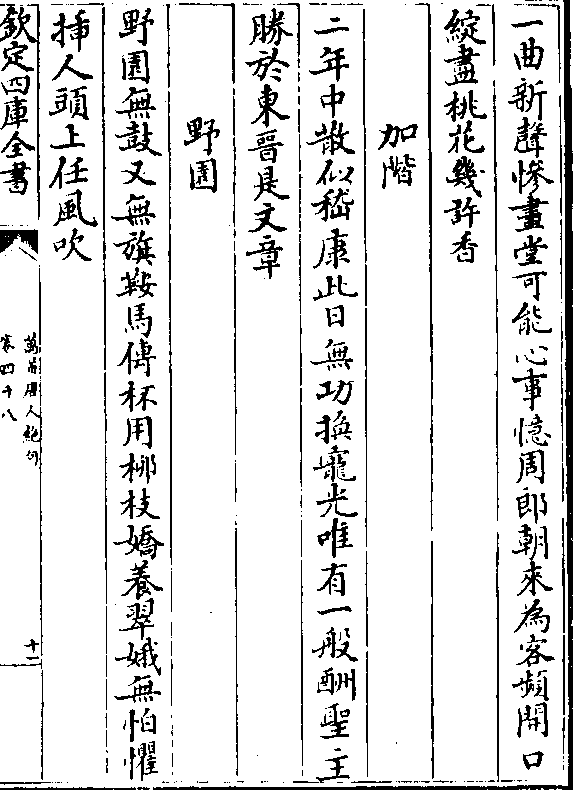 一曲新聲慘畫堂可能心事憶周郎朝來為客頻開口
綻盡桃花幾許香
加階
二年中散似嵇康此日無功換寵光唯有一般酬聖主
勝於東晉是文章
野園
野園無鼓又無旗鞍馬傳杯用柳枝嬌養翠娥無怕懼
挿人頭上任風吹
欽定四庫全書
萬首唐人絕句
卷四十八
十一